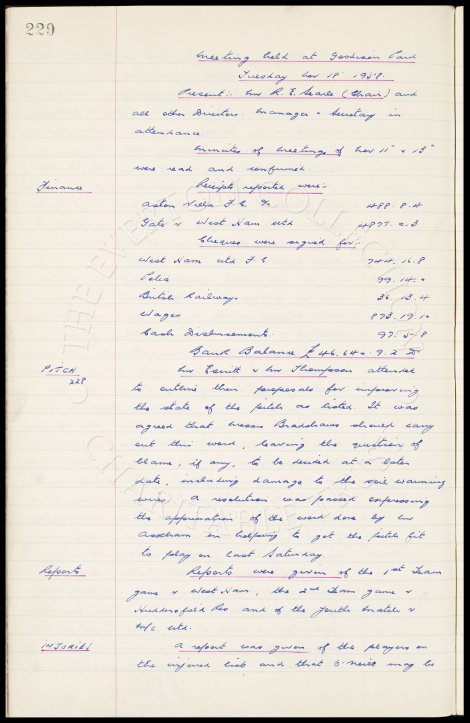 229
Meeting held at Goodison Park
Tuesday Nov 18 1958.
Present: Mr R. E. Searle (Chair) and
all other Directors. Manager & Secretary in
attendance.
Minutes of Meetings of Nov 11th & 13th
were read and confirmed
Finance
Receipts reported were:-
Aston Villa F.C. % 488. 8. 4
Gate v West Ham Utd 4877. 0. 3
Cheques were signed for:-
West Ham Utd F.C 744. 16. 8
Police 99. 14. 0
British Railways 36. 13. 4
Wages 873. 19. 10
Cash Disbursements. 97. 5. 8
Bank Balance £46.640. 9. 2
PITCH
228
Mr & Mr Thompson attended
to outline their proposals for improving
the state of the pitch as listed. It was
agreed that Messrs Bradshaws should carry
out this work, leaving the question of
blame, if any, to be decided at a later
date, including damage to the soil warming
wires. A resolution was passed expressing
the appreciation of the work done by Mr
in helping to get the pitch fit
to play on last Saturday.
Reports
Reports were given of the 1st Team
game v West Ham, the 2nd Team game v
Huddersfield Res and of the Youth Match v
M/c Utd.
INJURIES
A report was given of the players on
the injured list and that O'Neill may be
© THE EVERTON COLLECTION
CHARITABLE